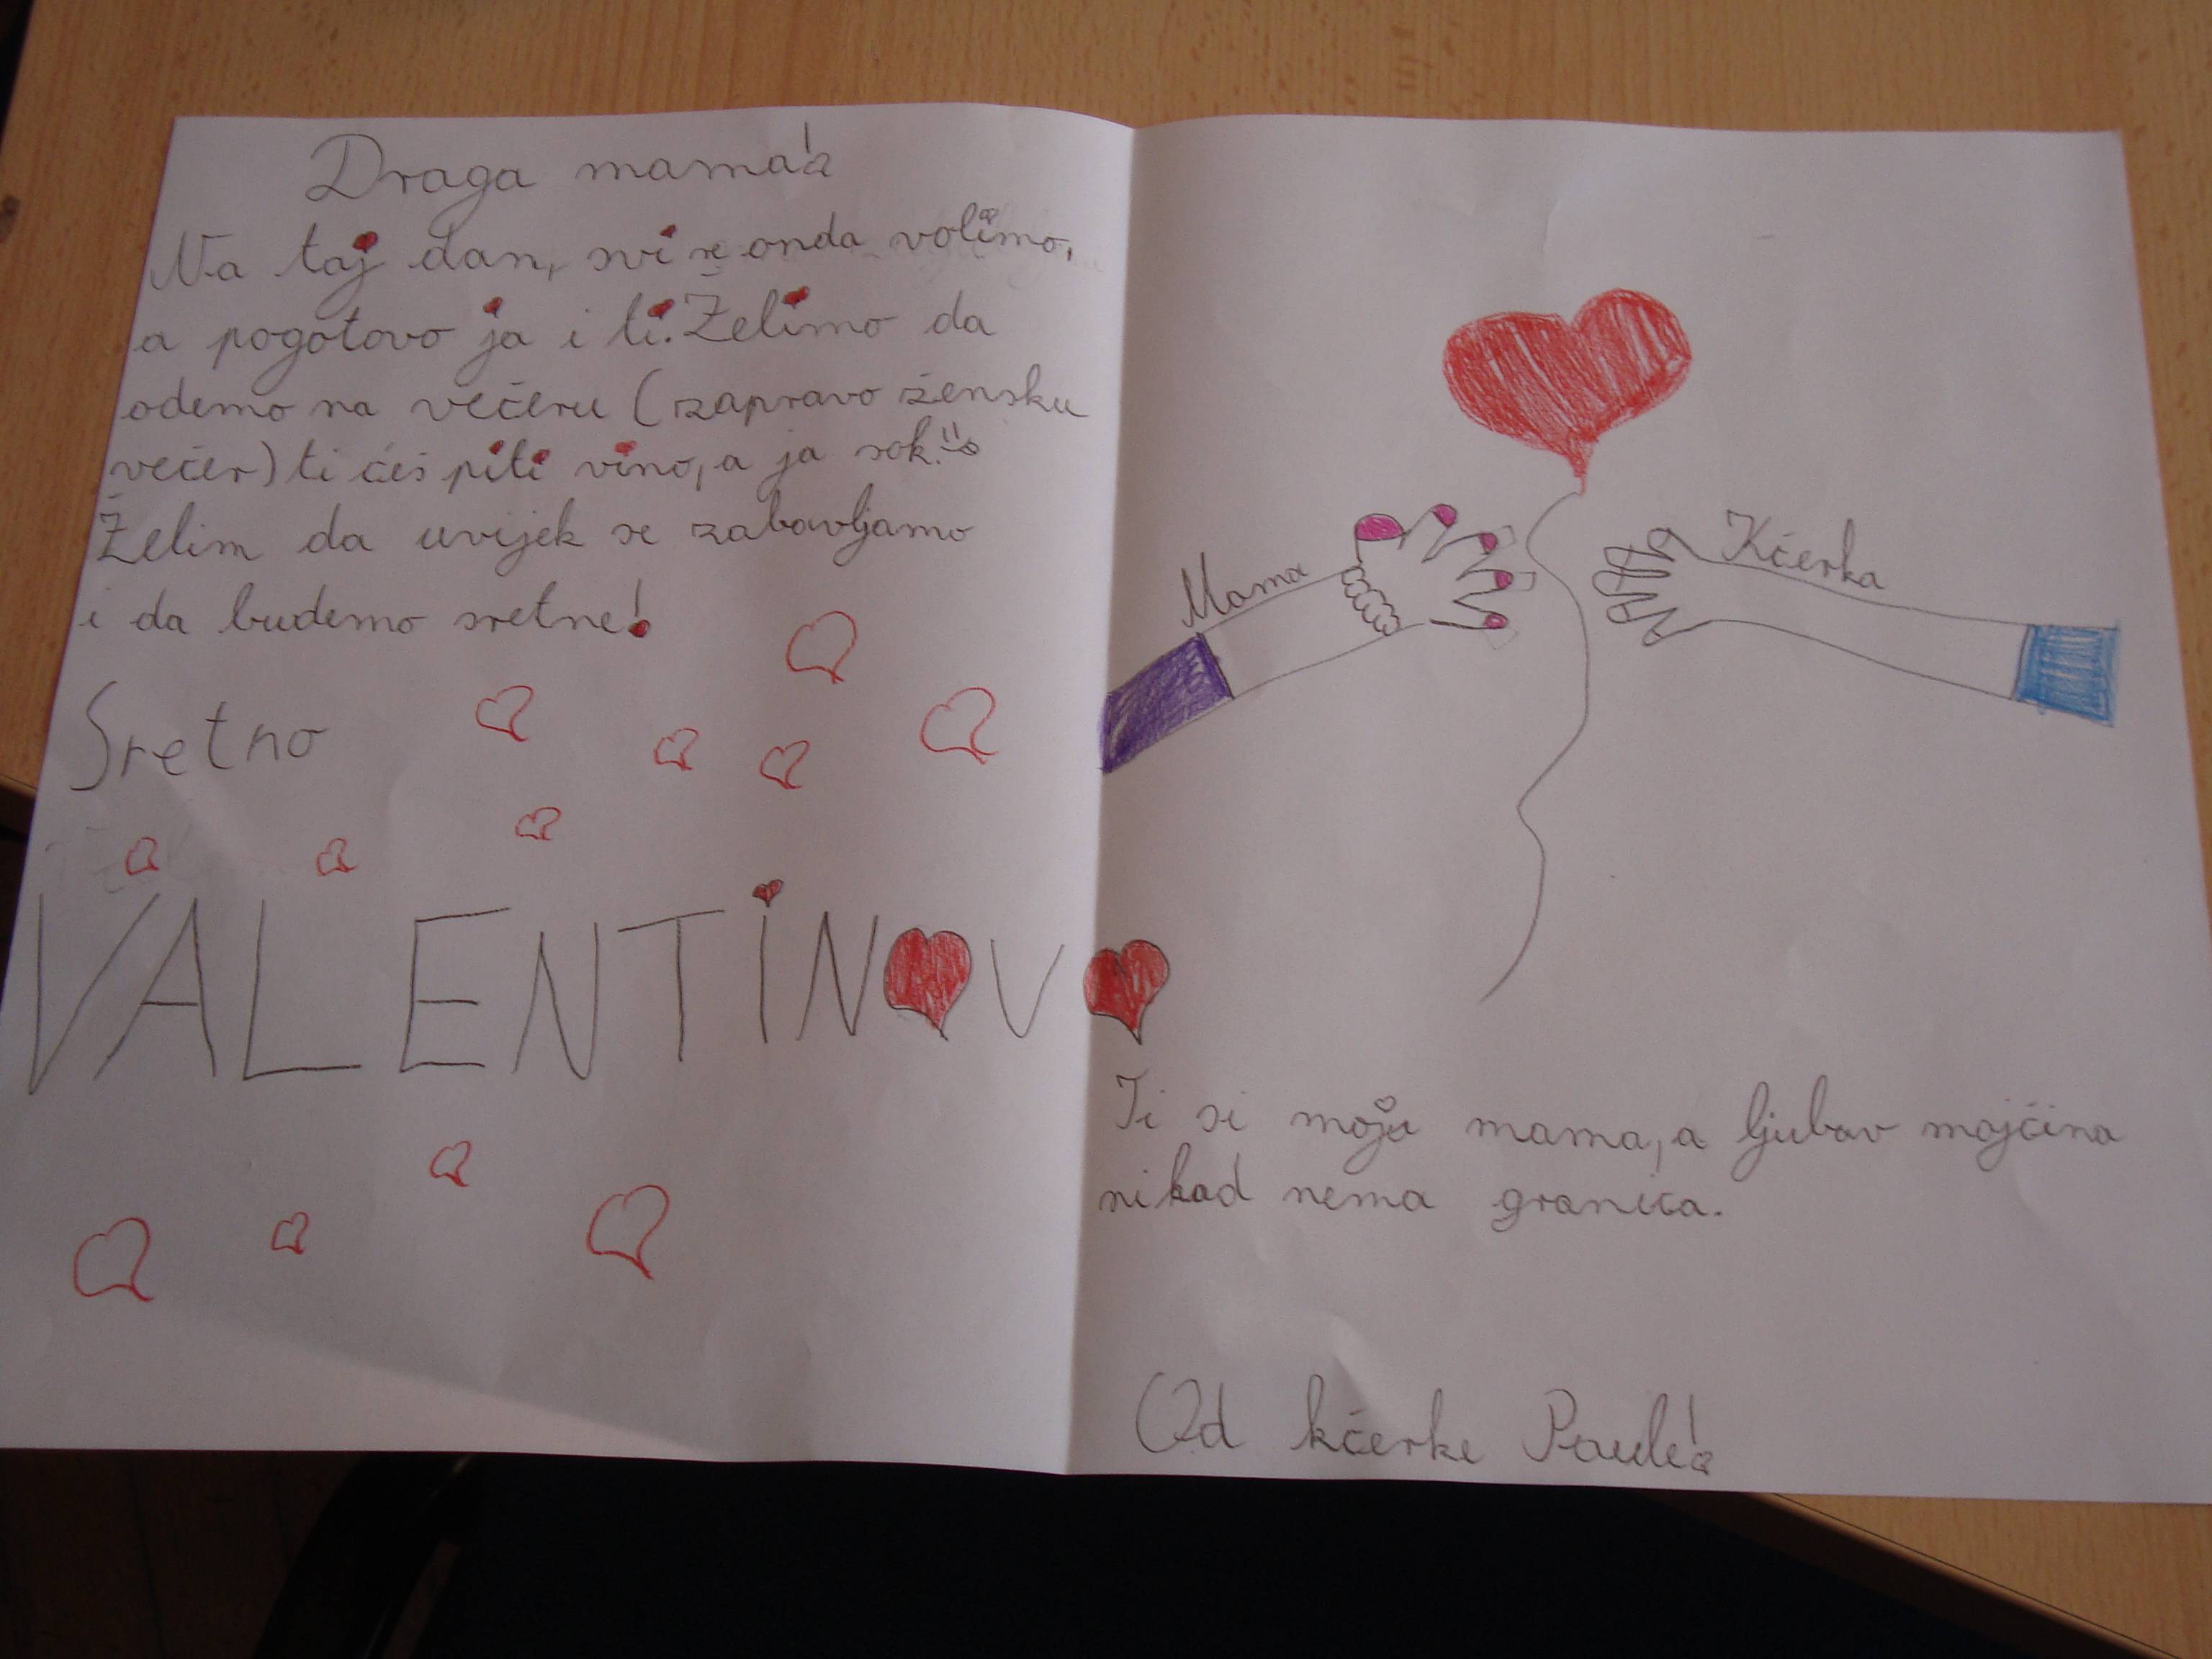 Draga mama!
Na taj dan, svi se onda volimo,
a pogotovo ja i ti. Želimo da
odemo na večeru (zapravo žensku
večer) ti ćeš piti vino, a ja sok!
Želim da uvijek se zabavljamo
i da budemo sretne!
Sretno
VALENTINOVO
Mama
Kćerka
Ti si moja mama, a ljubav majčina
nikad nema granica.
Od kćerke Paule!